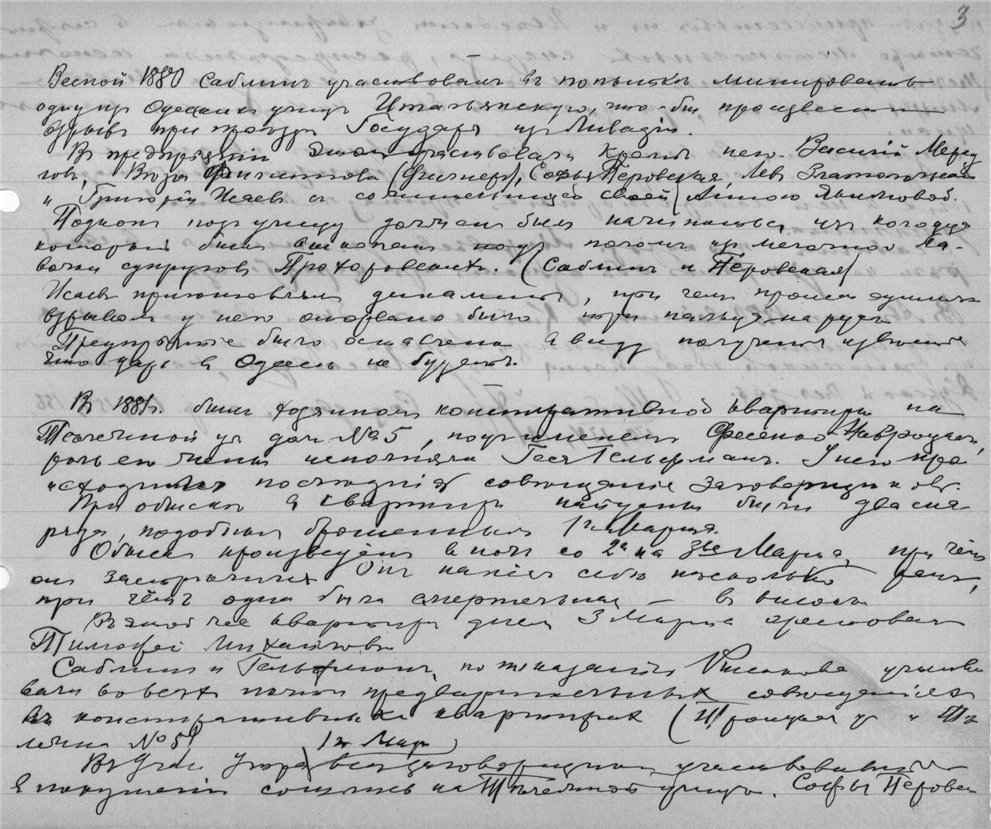 3
Весной 1880 Саблин участвовал в попытке минировать
одну из Одесских улиц Итальянскую, что-бы произвести
взрыв при проезде Государя из Ливадии.
В предприятии этом участвовали кроме него Василий Мерку
лов, Вера Филиппова (Фигнер), Софья Перовская, Лев Златопольский
и Григорий Исаев с сожительницей своей Анною Якимовой.
Подкоп под улицу должен был начинаться из колодца
который был выкопан под полом из мелочной ла-
вочки супругов Прохоровских. (Саблин и Перовская)
Исаев приготовлял динамит, при чем
взрывом у него оторвало было три пальца на руке
Предприятие было оставлено в виду получения известия
что царь в Одессе не будет.
В 1881 г. был хозяином конспиративной квартиры на
Тележной ул дом № 5, под именем Фесенко-Навроцкий,
роль его жены исполняла Геся Гельфман. У него про
исходили последние совещание заговорщиков.
При обыске в квартире найдены были два сна
ряда, подобных брошенным 1го Марта.
Обыск произведен в ночь со 2го на 3ье Марта, при чем
он застрелился. Он нанес себе несколько ран,
при чем одна была смертельная — в висок
В этой же квартире днем 3 Марта арестован
Тимофей Михайлов
Саблин и Гельфман, по показанию Рысакова участво
вали во всех почти предварительных совещаниях
в конспиративных квартирах (Троицкая ул и Те
лежная № 5)
1го Мар
В 9 час утра все заговорщики участвовавшие
в покушении сошлись на Тележной улице. Софья Перовск